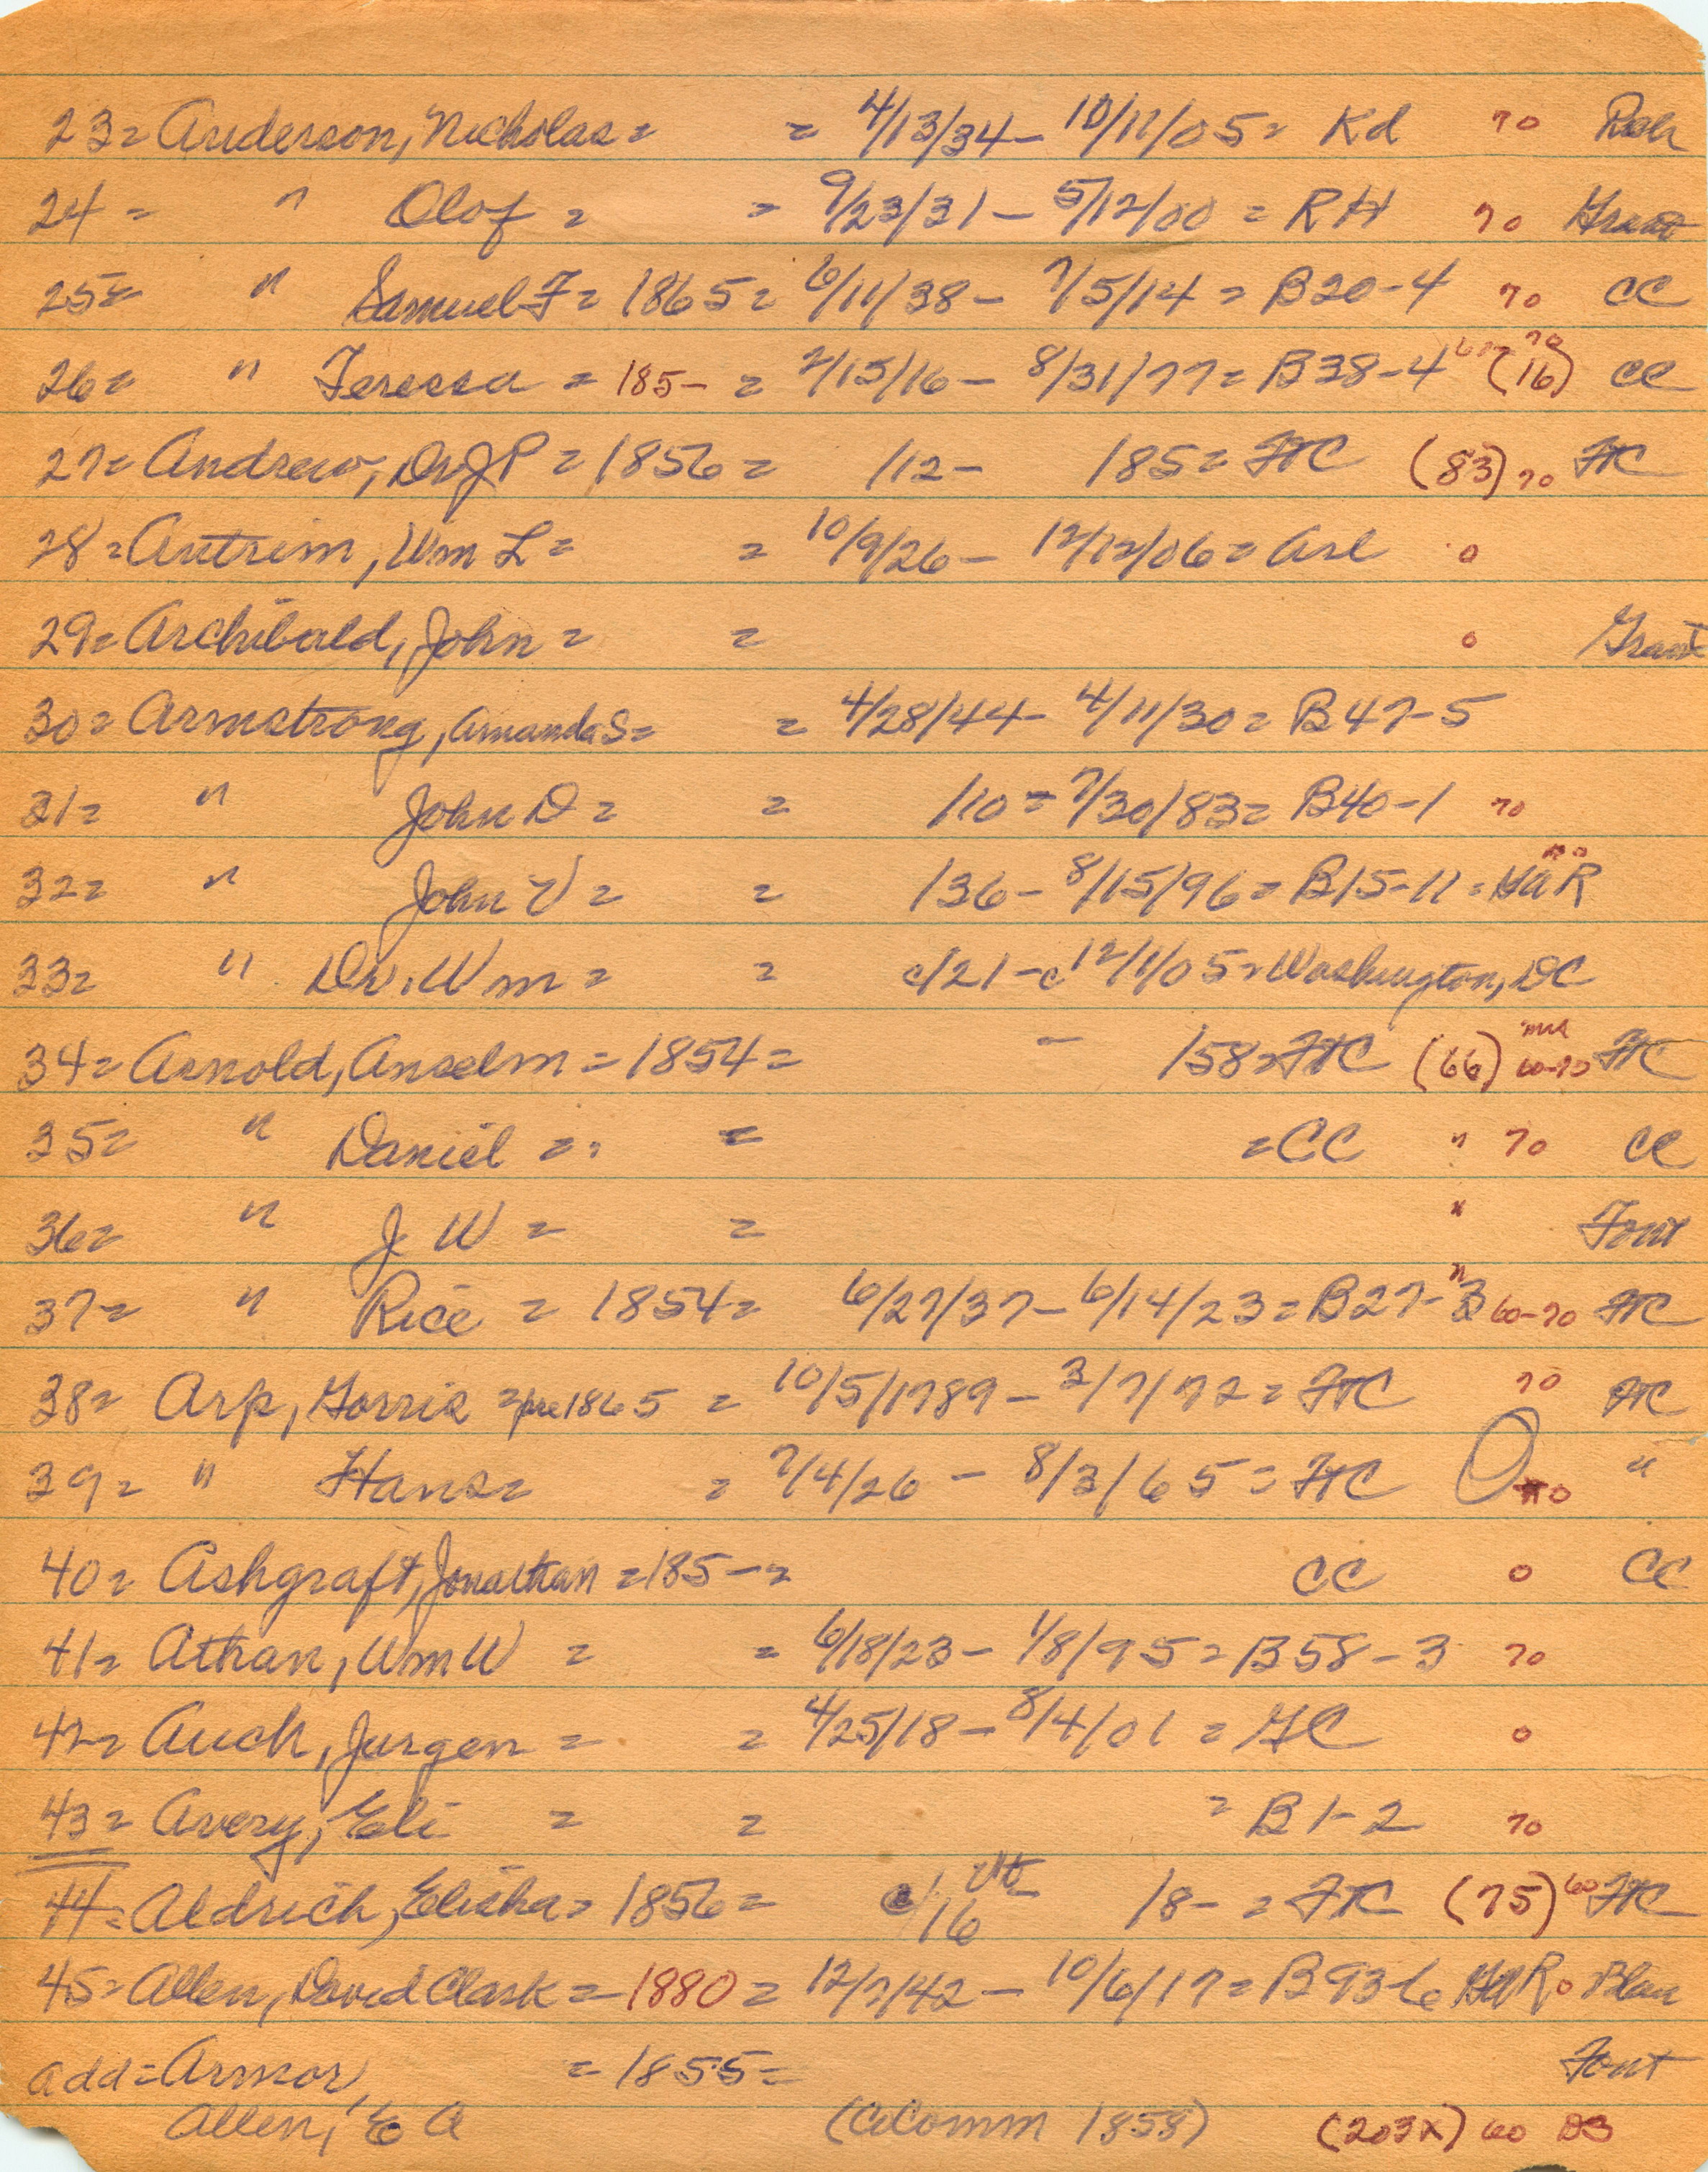 23= Anderson, Nicholas = = 4/13/34 – 10/11/05 = Kd 70
24 = " Olof = = 9/23/31 – 5/12/00 = RH 70 Grant
25= " Samuel F = 1865 = 6/11/38 – 7/5/14 = B20-4 70 CC
26= " Teressa = 185– = 2/15/16 – 8/31/77 = B38-4 60 70 (16) CC
27= Andrew, Dr J P = 1856 = /12 – 185 = FTC (83) 70 FTC
28= Antrim, Wm L = = 10/9/26 – 12/12/06 = Asl 0
29= Archibald, John = = 0 Grant
30= Armstrong, Amanda S = = 4/28/44 – 4/11/30 = B47-5
31= " John D = = /10 = 7/30/83 = B40-1 70
32= " John V = = /36 – 8/15/96 = B15-11 = GAR 70
33= " Dr. Wm = = c/21 – c 12/1/05 = Washington, DC
34= Arnold, Anselm = 1854 = – 158 = FTC (66) 60-70 FTC
35= " Daniel = = = CC " 70 CC
36= " J W = = " Font
37= " Rice = 1854 = 6/27/37 – 6/14/23 = B27-3 " 60-70 FTC
38= Arp, Gorris = pre 1865 = 10/5/1789 – 3/7/72 = FTC 70 FTC
39= " Hans = = 7/4/26 – 8/3/65 = FTC 70 "
40= Ashgraft, Jonathan = 185– = CC 0 CC
41= Athan, Wm W = = 6/18/23 – 1/8/95 = B58-3 70
42= Auch, Jurgen = = 4/25/18 – 8/4/01 = GC 0
43= Avery, Eli = = = B1-2 70
44= Aldrich, Elisha = 1856 = c/16 Vt 18– = FTC (75) 60 FTC
45= Allen, David Clark = 1880 = 12/7/42 – 10/6/17 = B93-6 GAR 0
add = Armor, = 1855 = Font
Allen, E A (CComm 1858) (203X) 60